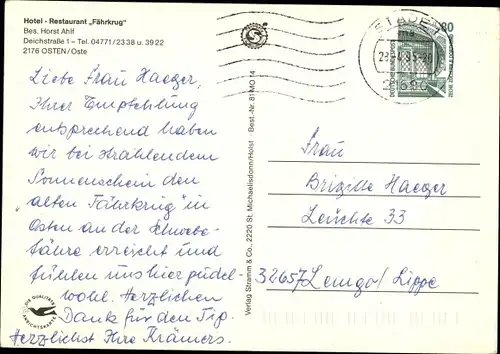 Hotel - Restaurant „Fährkrug"
Bes. Horst Ahlf
Deichstraße 1 – Tel. 04771/23 38 u. 39 22
2176 OSTEN/Oste
Liebe Frau Haeger,
Ihrer Empfehlung
entsprechend haben
wir bei strahlendem
Sonnenschein den
„alten Fährkrug" in
Osten an der Schwebe-
fähre erreicht und
fühlen uns hier pudel-
wohl. Herzlichen
Dank für den Tip.
Herzlichst Ihre Krämers.
DIE QUALITÄTS
ANSICHTSKARTE
Verlag Stramm & Co., 2220 St. Michaelisdonn/Holst · Best.-Nr. 81 MO 14
STADE
80
DEUTSCHE BUNDESPOST
Frau
Brigitte Haeger
Leuchte 33
32657 Lemgo/Lippe